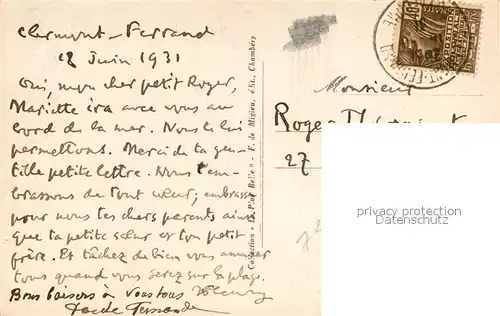 Clermont-Ferrand
12 Juin 1931
Oui, mon cher petit Roger,
Mariette ira avec vous au
bord de la mer. Nous le lui
permettons. Merci de ta gen-
tille petite lettre. Nous t'em-
brassons de tout cœur; embrasse
pour nous tes chers parents ainsi
que ta petite sœur et ton petit
frère. Et tâchez de bien vous amuser
tous quand vous serez sur la plage.
Bons baisers à vous tous
Collection "La P'tite Belle" - F. de Migieu, édit., Chambéry
Monsieur
Roger
27
privacy protection
oldthing.de